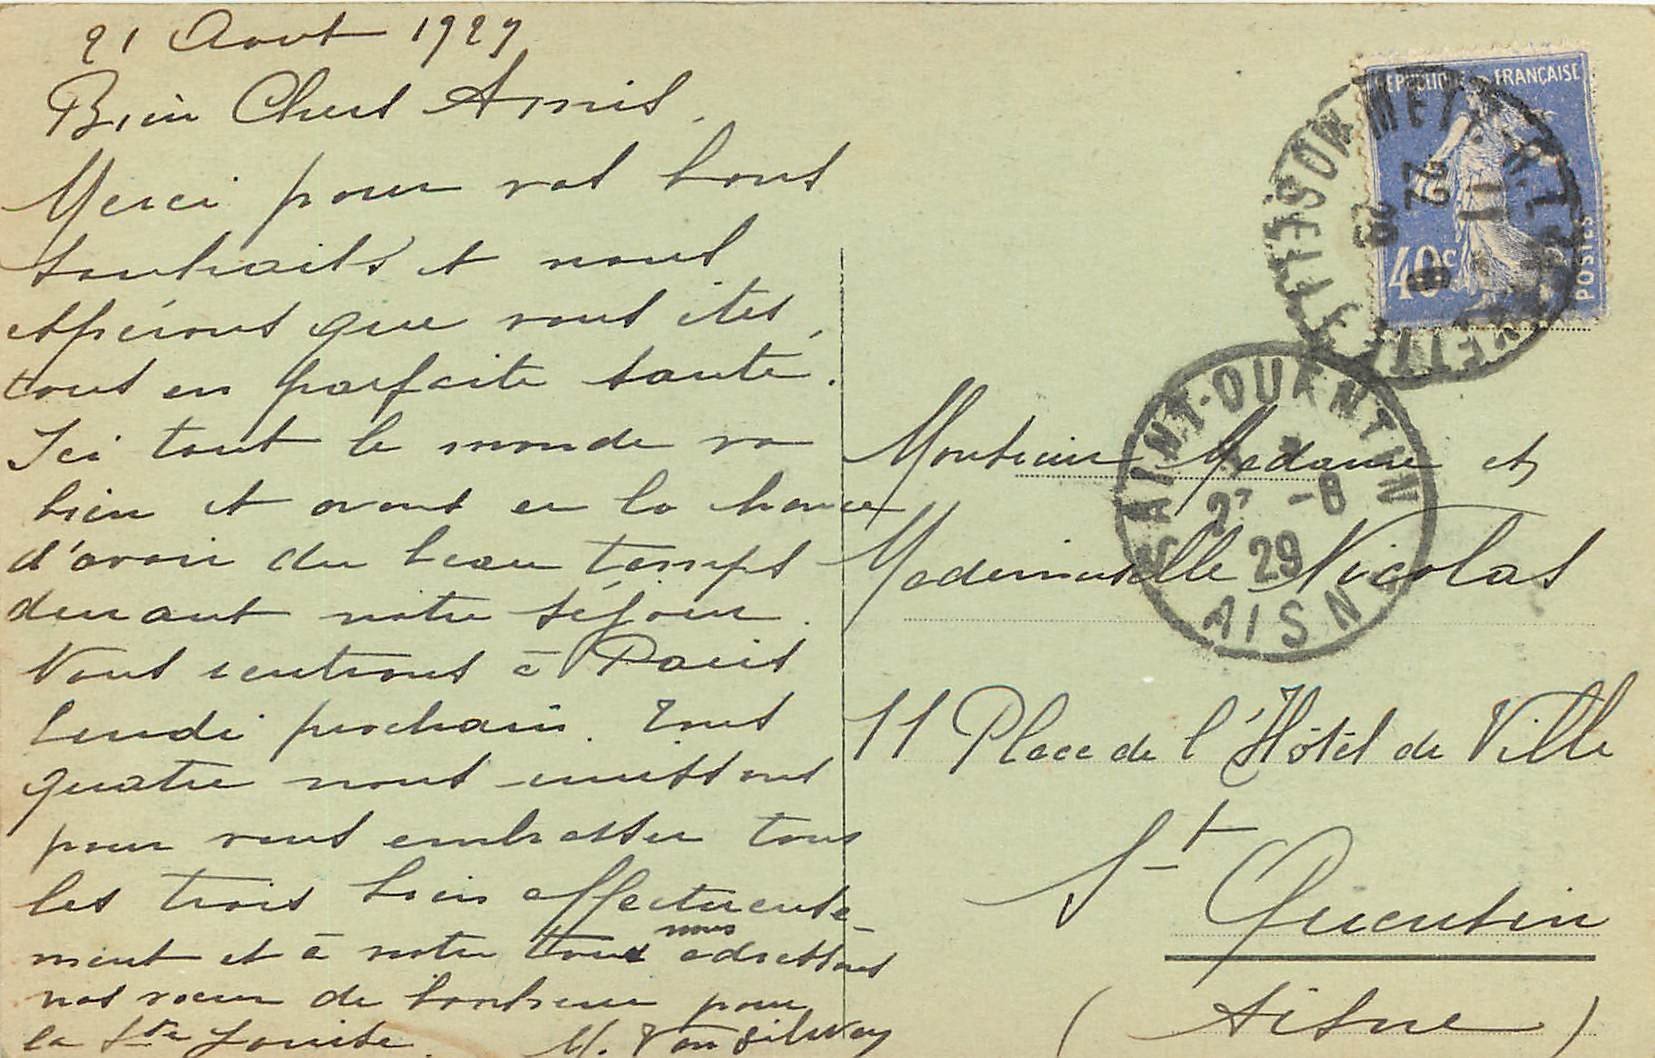 21 Aout 1929
Bien Chers Amis.
Merci pour vos bons
souhaits et nous
espérons que vous êtes,
tous en parfaite santé.
Ici tout le monde va
bien et avons eu la chance
d'avoir du beau temps
durant notre séjour.
Nous rentrons à Paris
lundi prochain. Tous
quatre nous unissons
pour vous embrasser tous
les trois bien affectueuse-
ment et à notre tour nous adressons
nos vœux de bonheur pour
la Ste Louise.
REPUBLIQUE FRANÇAISE
POSTES
40c
22
8
29
SAINT-QUENTIN
-8
29
AISNE
Monsieur Madame et
Mademoiselle Nicolas
11 Place de l'Hôtel de Ville
St Quentin
(Aisne)